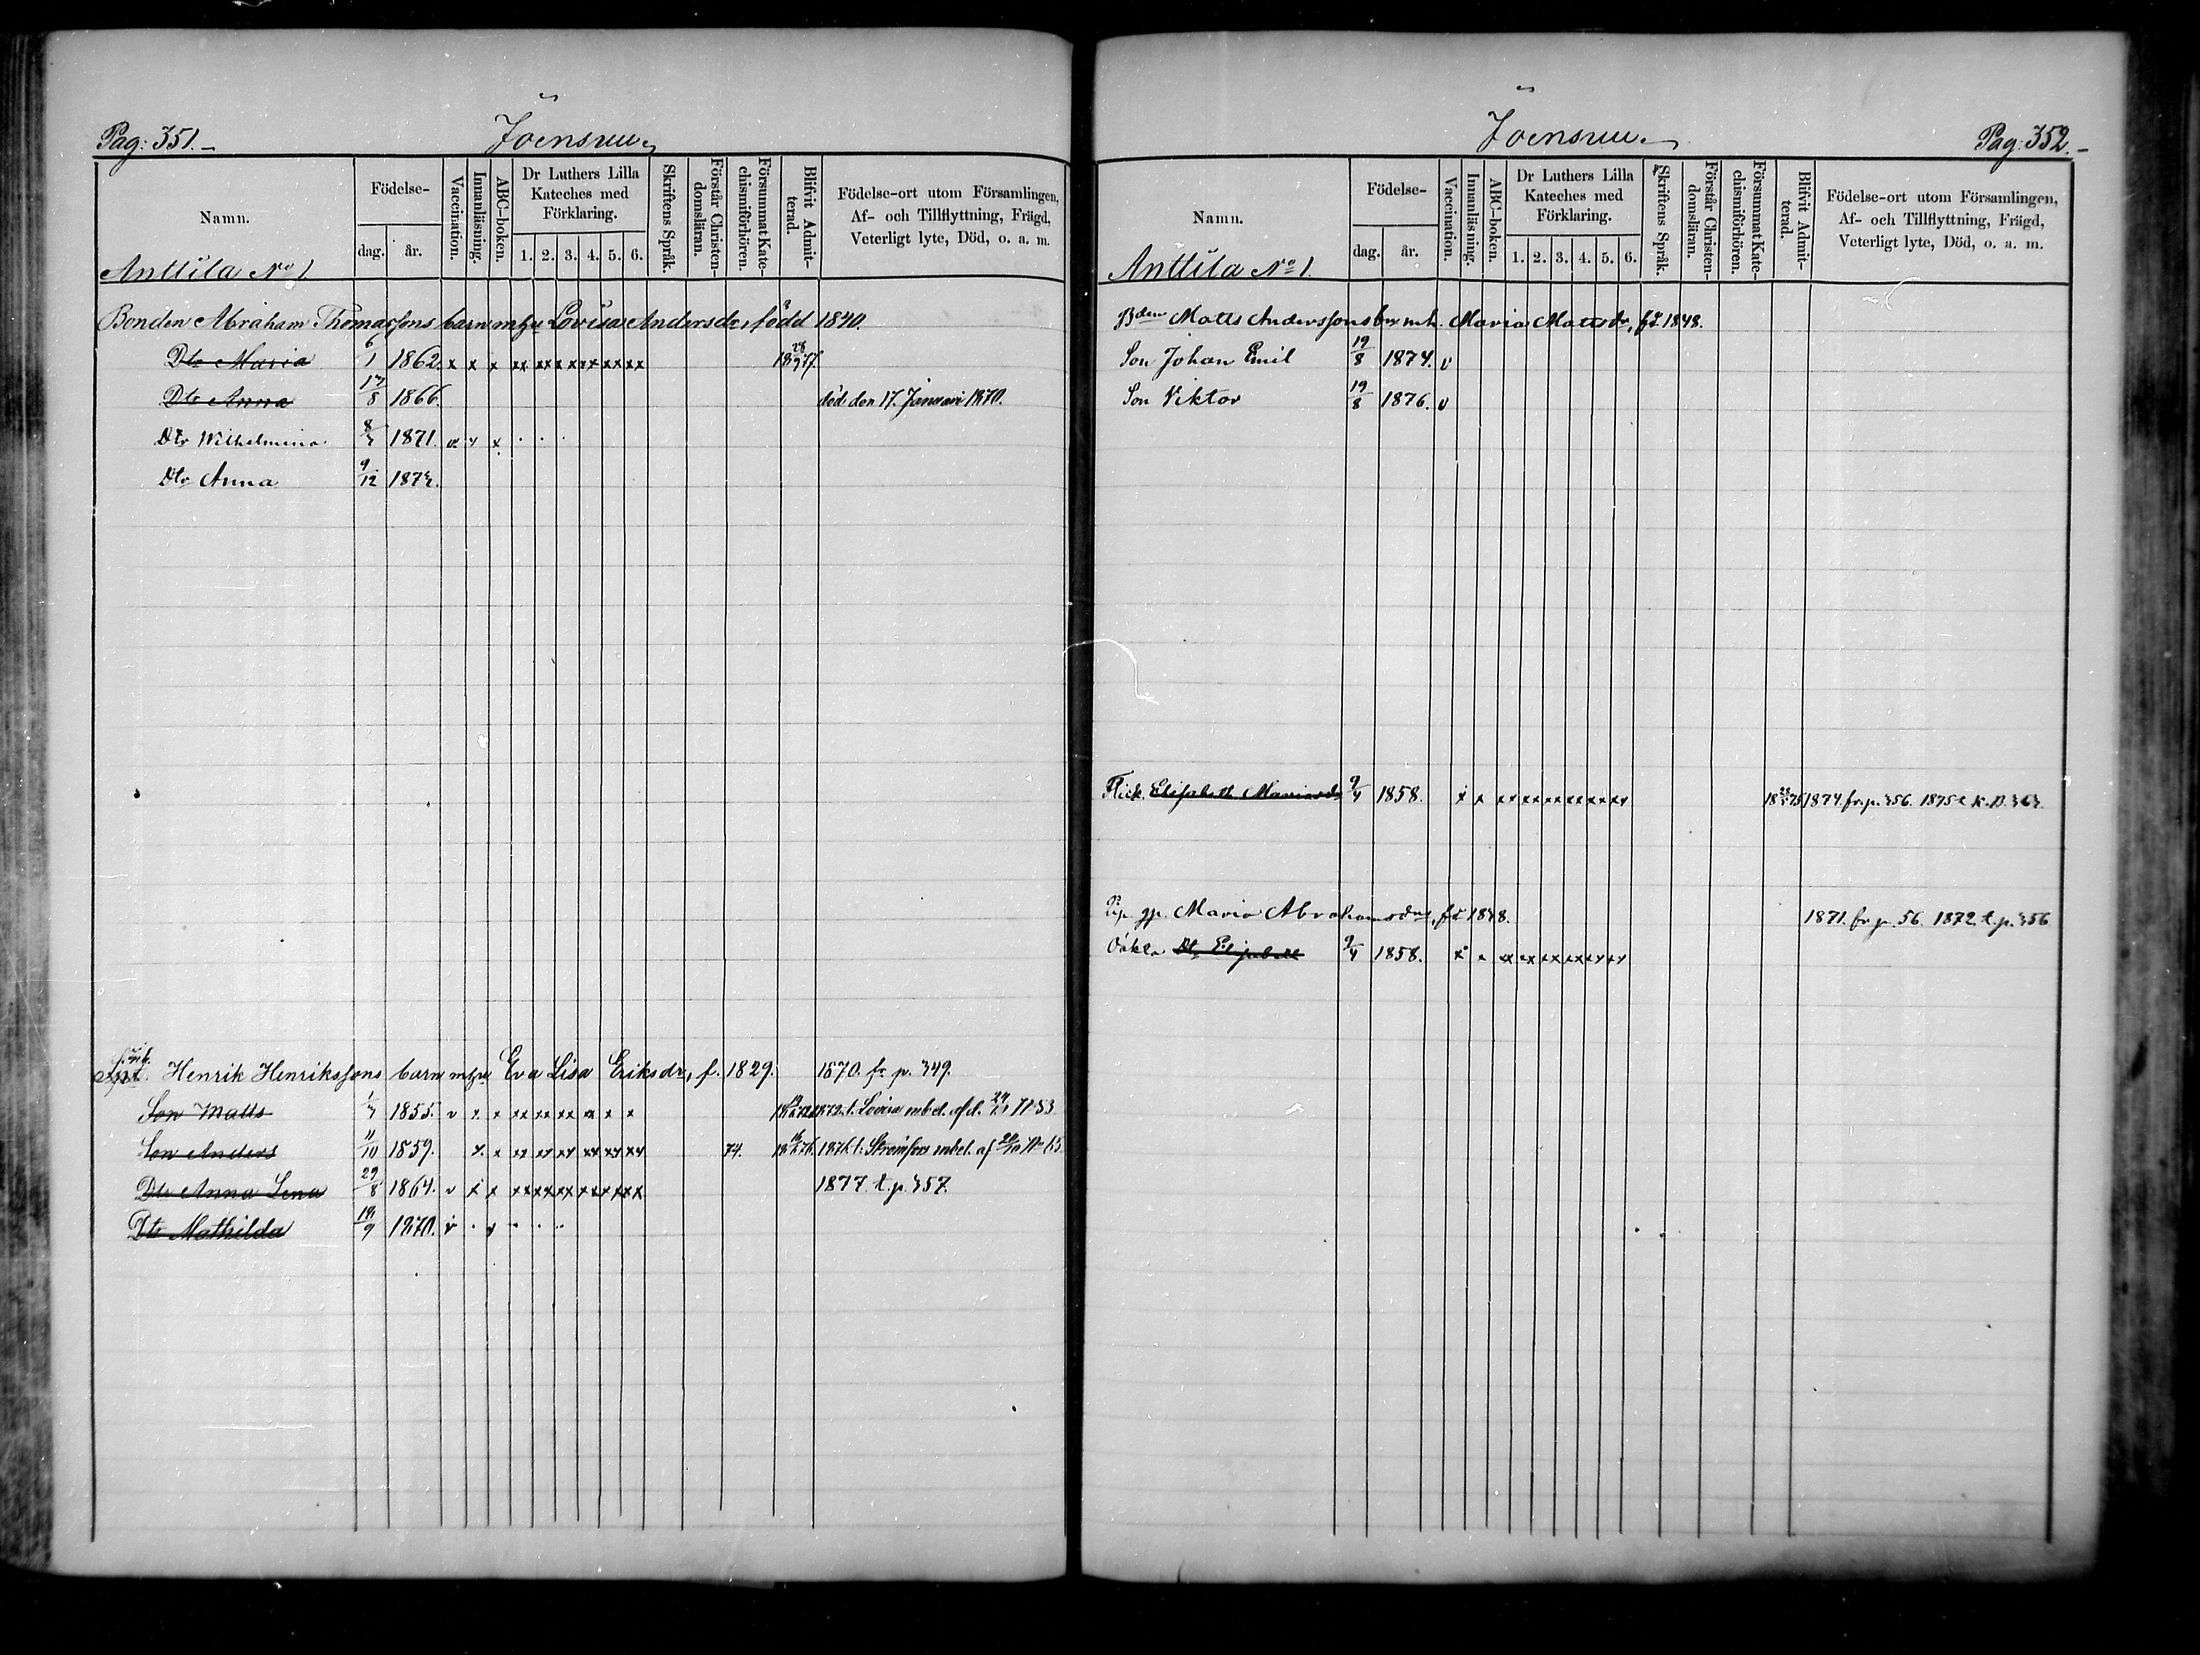 Pag: 351.
Joensuu.
Namn.
Födelse-
dag.
år.
Vaccination.
Innanläsning.
ABC-boken.
Dr Luthers Lilla
Kateches med
Förklaring.
1. 2. 3. 4. 5. 6.
Skriftens Språk.
Förstår Christen-
domsläran.
Försummat Kate-
chismiförhören.
Blifvit Admit-
terad.
Födelse-ort utom Församlingen,
Af- och Tillflyttning, Frägd,
Veterligt lyte, Död, o. a. m.
Anttila No 1
Bonden Abraham Thomassons barn mhu Lovisa Andersdr, född 1840.
Dtr Maria 6/1 1862. x x x xx xx xx xx xx xx
Dtr Anna 17/8 1866. död den 17. Januari 1870.
Dtr Wilhelmina 1871. x
Dtr Anna 9/12
Henrik Henrikssons barn mhu Eva Lisa Eriksdr, f. 1829. 1870. fr p. 349.
Son Matts 1855. v x x xx xx xx x x x
Son Anders 11/10 1859. x. x xx xx xx xx xx xx 74.
Dtr Anna Lena 29/8 1864. v x x xx xx xx xx xx xx 1877. t. p. 357.
Dtr Mathilda 1870.
Joensuu.
Pag: 352.
Namn.
Födelse-
dag.
år.
Vaccination.
Innanläsning.
ABC-boken.
Dr Luthers Lilla
Kateches med
Förklaring.
1. 2. 3. 4. 5. 6.
Skriftens Språk.
Förstår Christen-
domsläran.
Försummat Kate-
chismiförhören.
Blifvit Admit-
terad.
Födelse-ort utom Församlingen,
Af- och Tillflyttning, Frägd,
Veterligt lyte, Död, o. a. m.
Anttila No 1
Bden Matts Anderssons brn mh. Maria Mattsdr, fd. 1848.
Son Johan Emil 19/8 1874. v
Son Viktor 19/8 1876. v
Flick. Elisabeth Mariasdr 9/4 1858. x x xx xx xx xx xx xx 1874. fr. p. 356. 1875
Maria Abrahamsdrs, fd 1871. fr p. 56. 1872 t. p. 356
Oäkta Dtr Elisabeth 9/4 1858. x x xx xx xx xx xx xx